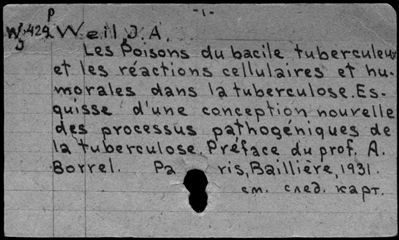 -1-
P
W.429 Weil, J.A.
J
Les Poisons du bacile tuberculeux
et les réactions cellulaires et hu-
morales dans la tuberculose. Es-
quisse d'une conception nouvelle
des processus pathogéniques de
la tuberculose. Préface du prof. A.
Borrel. Paris, Baillière, 1931.
см. след. карт.